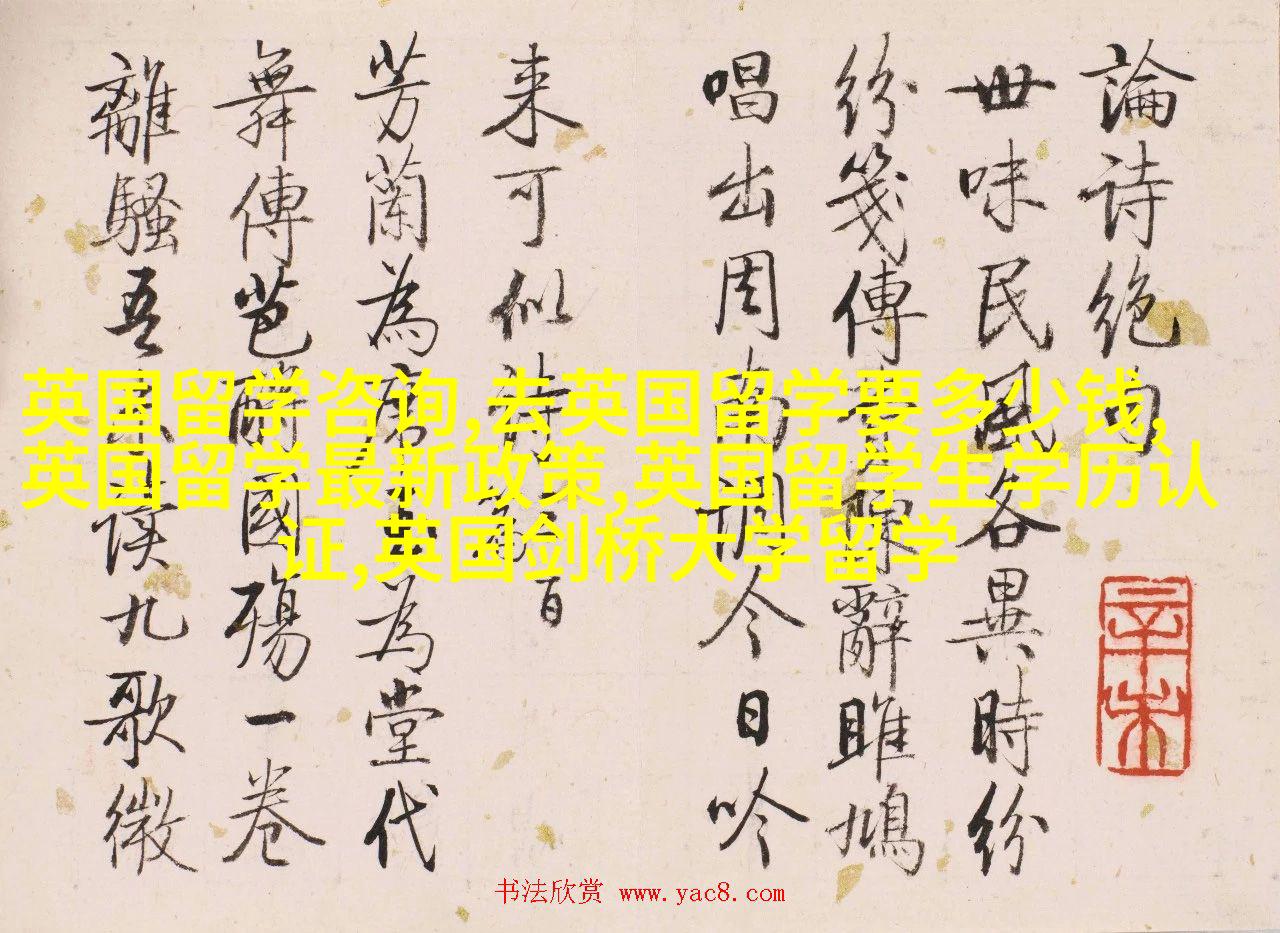 論诗绝句
世味民風各異時纷
纷箋傳陳辭雎鳩
唱出周南調今日吟
来可似诗百
芳蘭為席為堂代
舞傳芭酹國殤一卷
離騷吾未读九歌微
辛未
英国留学咨询,去英国留学要多少钱,
英国留学最新政策,英国留学生学历认
证,英国剑桥大学留学
书法欣赏 www.yac8.com